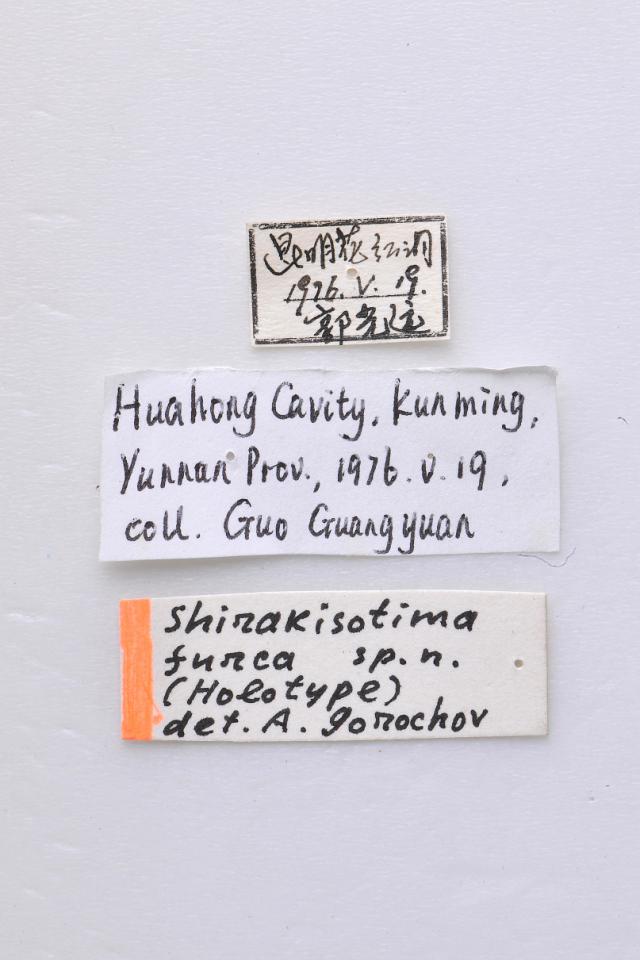 昆明花红洞
1976.V.19.
郭光远
Huahong Cavity, Kunming,
Yunnan Prov., 1976.V.19,
coll. Guo Guangyuan
Shirakisotima
furca sp.n.
(Holotype)
det. A. Gorochov